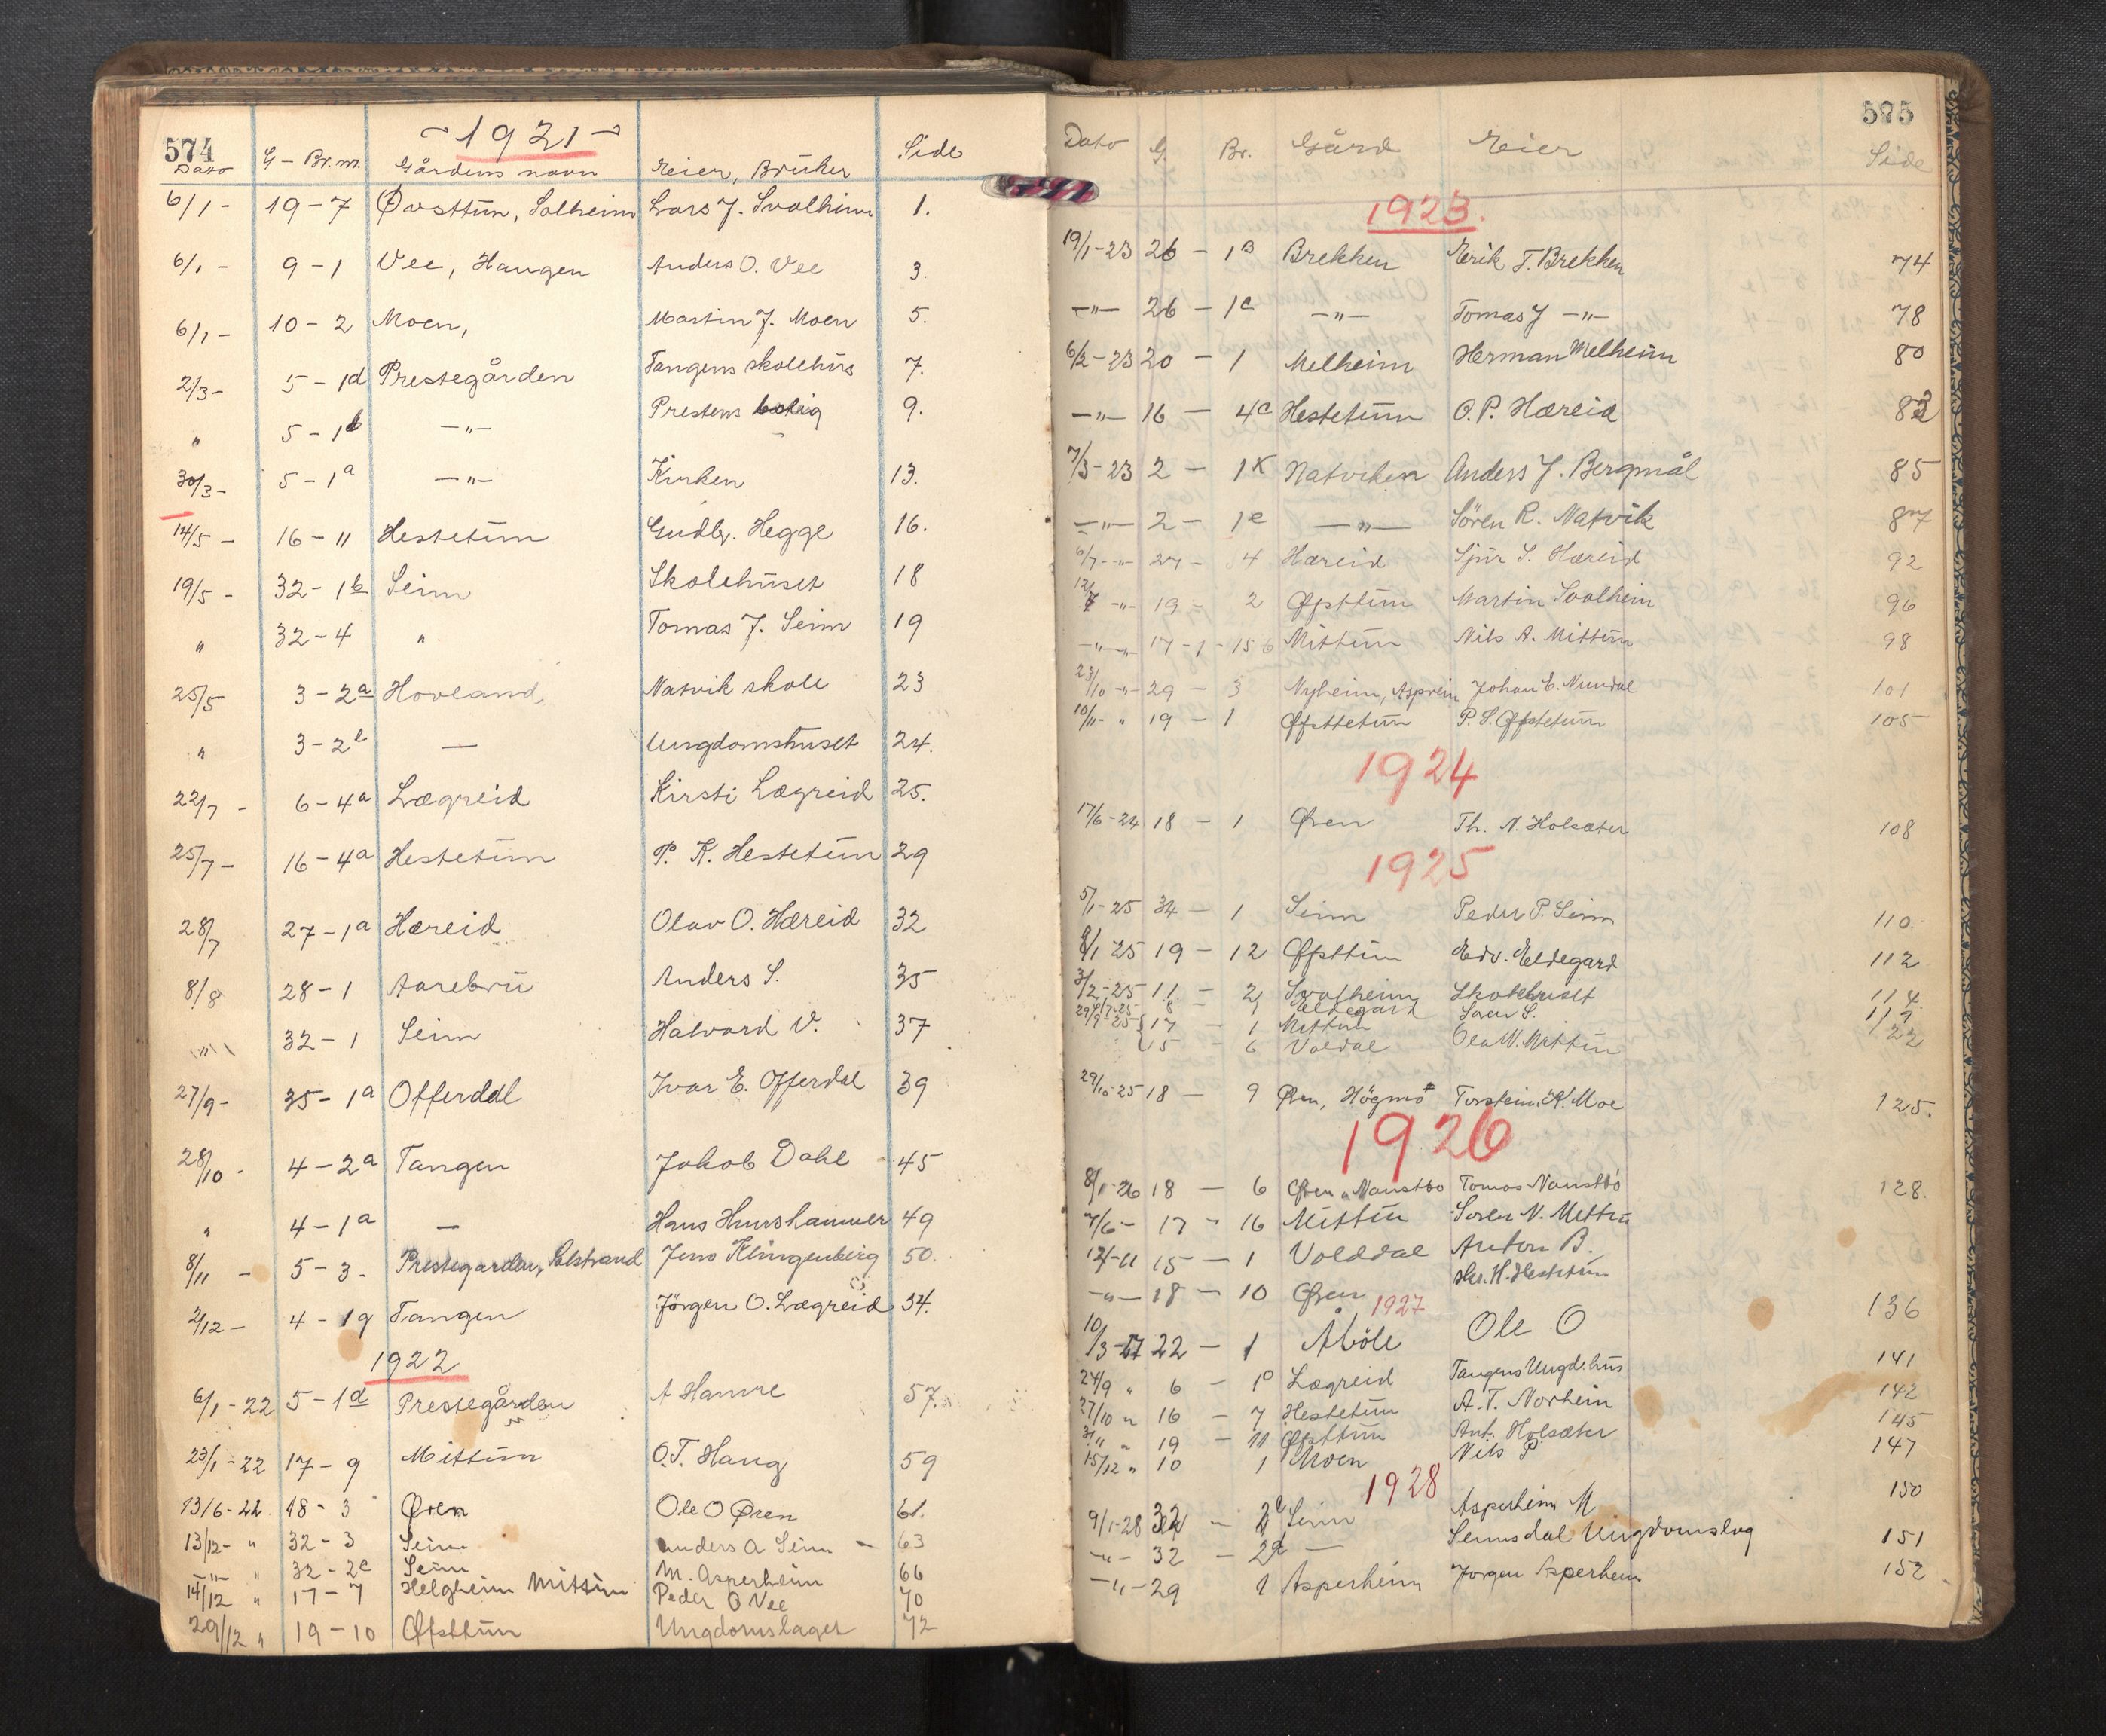 574
~ 1921 ~
Dato G - Br. nr. Gårdens navn Eier, Bruker Side
6/1 - 19 - 7 Øvsttun, Solheim Lars J. Svalheim 1.
6/1 - 9 - 1 Vee, Haugen Anders O. Vee 3.
6/1 - 10 - 2 Moen, Martin J. Moen 5.
2/3 - 5 - 1d Prestegården Tangens skolehus 7.
" 5 - 1b -"- Prestens bolig 9.
30/3 - 5 - 1a -"- Kirken 13.
14/5 - 16 - 11 Hestetun Gudbr. Hegge 16.
19/5 - 32 - 1b Seim Skolehuset 18
" 32 - 4 " Tomas J. Seim 19
25/5 3 - 2a Hovland, Natvik skole 23
" 3 - 2 — Ungdomshuset 24.
22/7 - 6 - 4a Lægreid Kirsti Lægreid 25.
25/7 - 16 - 4a Hestetun P. K. Hestetun 29
28/7 27 - 1a Hæreid Olav O. Hæreid 32
8/8 28 - 1 Aarebru Anders S. 35
-"- 32 - 1 Seim Halvard V. 37
27/9 - 35 - 1a Offerdal Ivar E. Offerdal 39
28/10 - 4 - 2a Tangen Jakob Dahl 45
" 4 - 1a — Hans Hunshammer 49
8/11 - 5 - 3 - Prestegarden, Solstrand Jens Klingenberg 50.
2/12 - 4 - 1g Tangen Jörgen O. Lægreid 54.
1922
6/1 - 22 5 - 1d Prestegården A Hamre 57.
23/1 - 22 17 - 9 Mittun O.T. Haug 59
13/6 - 22 18 - 3 Øren Ole O Øren 61.
13/12 - " 32 - 3 Seim Anders A Seim - 63
-"- " 32 - 2c Seim M. Asperheim 66
14/12 " 17 - 7 Helgheim Mittun Peder O Vee 70
29/12 " 19 - 10 Øfsttun Ungdomslaget 72
575
Dato G. Br. Gård Eier Side
1923.
19/1-23 26 - 1B Brekken Erik T. Brekken 74
-"- 26 - 1c -"- Tomas J -"- 78
6/2-23 20 - 1 Melheim Herman Melheim 80
-"- 16 - 4c Hestetun O. P. Hæreid 83
7/3-23 2 - 1K Natviken Anders J. Bergmål 85
-"- 2 - 1e -"- Sören R. Natvik 87
6/7 -"- 27 - 4 Hæreid Sjur S. Hæreid 92
12/7 -"- 19 - 2 Øfsttun Martin Svalheim 96
-"- 17 - 1 - 15 6 Mittun Nils A. Mittun 98
23/10 -"- 29 - 3 Nyheim, Asprheim Johan E. Nundal 101
10/11 - " 19 - 1 Øfsttetun P. S. Øfstetun 105
1924
17/6-24 18 - 1 Øren Th. N. Holsæter 108
1925
5/1-25 34 - 1 Seim Peder P. Seim 110.
8/1 25 19 - 12 Øfsttun Edv. Eldegard 112
3/2-25 11 - 2 Svalheim Skolehuset 114
8 Eldegard Laur S. 119
29/9-25 17 - 1 Mittun
15 - 6 Voldal Ola N. Mittun 122
29/10-25 18 - 9 Øren, Högmo Torstein K. Moe 125.
1926
8/1-26 18 - 6 Øren, Naustbo Tomas Naustbö 128.
7/6 - 17 - 16 Mittun Søren N. Mittun
12/-11 15 - 1 Volddal Anton B.
-"- 18 - 10 Øren H. Hestetun
1927 136
10/3-27 22 - 1 Åböle Ole O
24/9 " 6 - 1 Lægreid Tangens Ungd.hus 141
27/10 " 16 - 7 Hestetun A. T. Norheim 142
" 19 - 11 Øfsttun Ant. Holsæter 145
15/12 " 10 1 Moen Nils P. 147
1928
9/1-28 32 - 2 Seim Asperheim M 150
-"- 32 - 2 — Seimsdal Ungdomslag 151
-"- 29 1 Asperheim Jørgen Asperheim 152